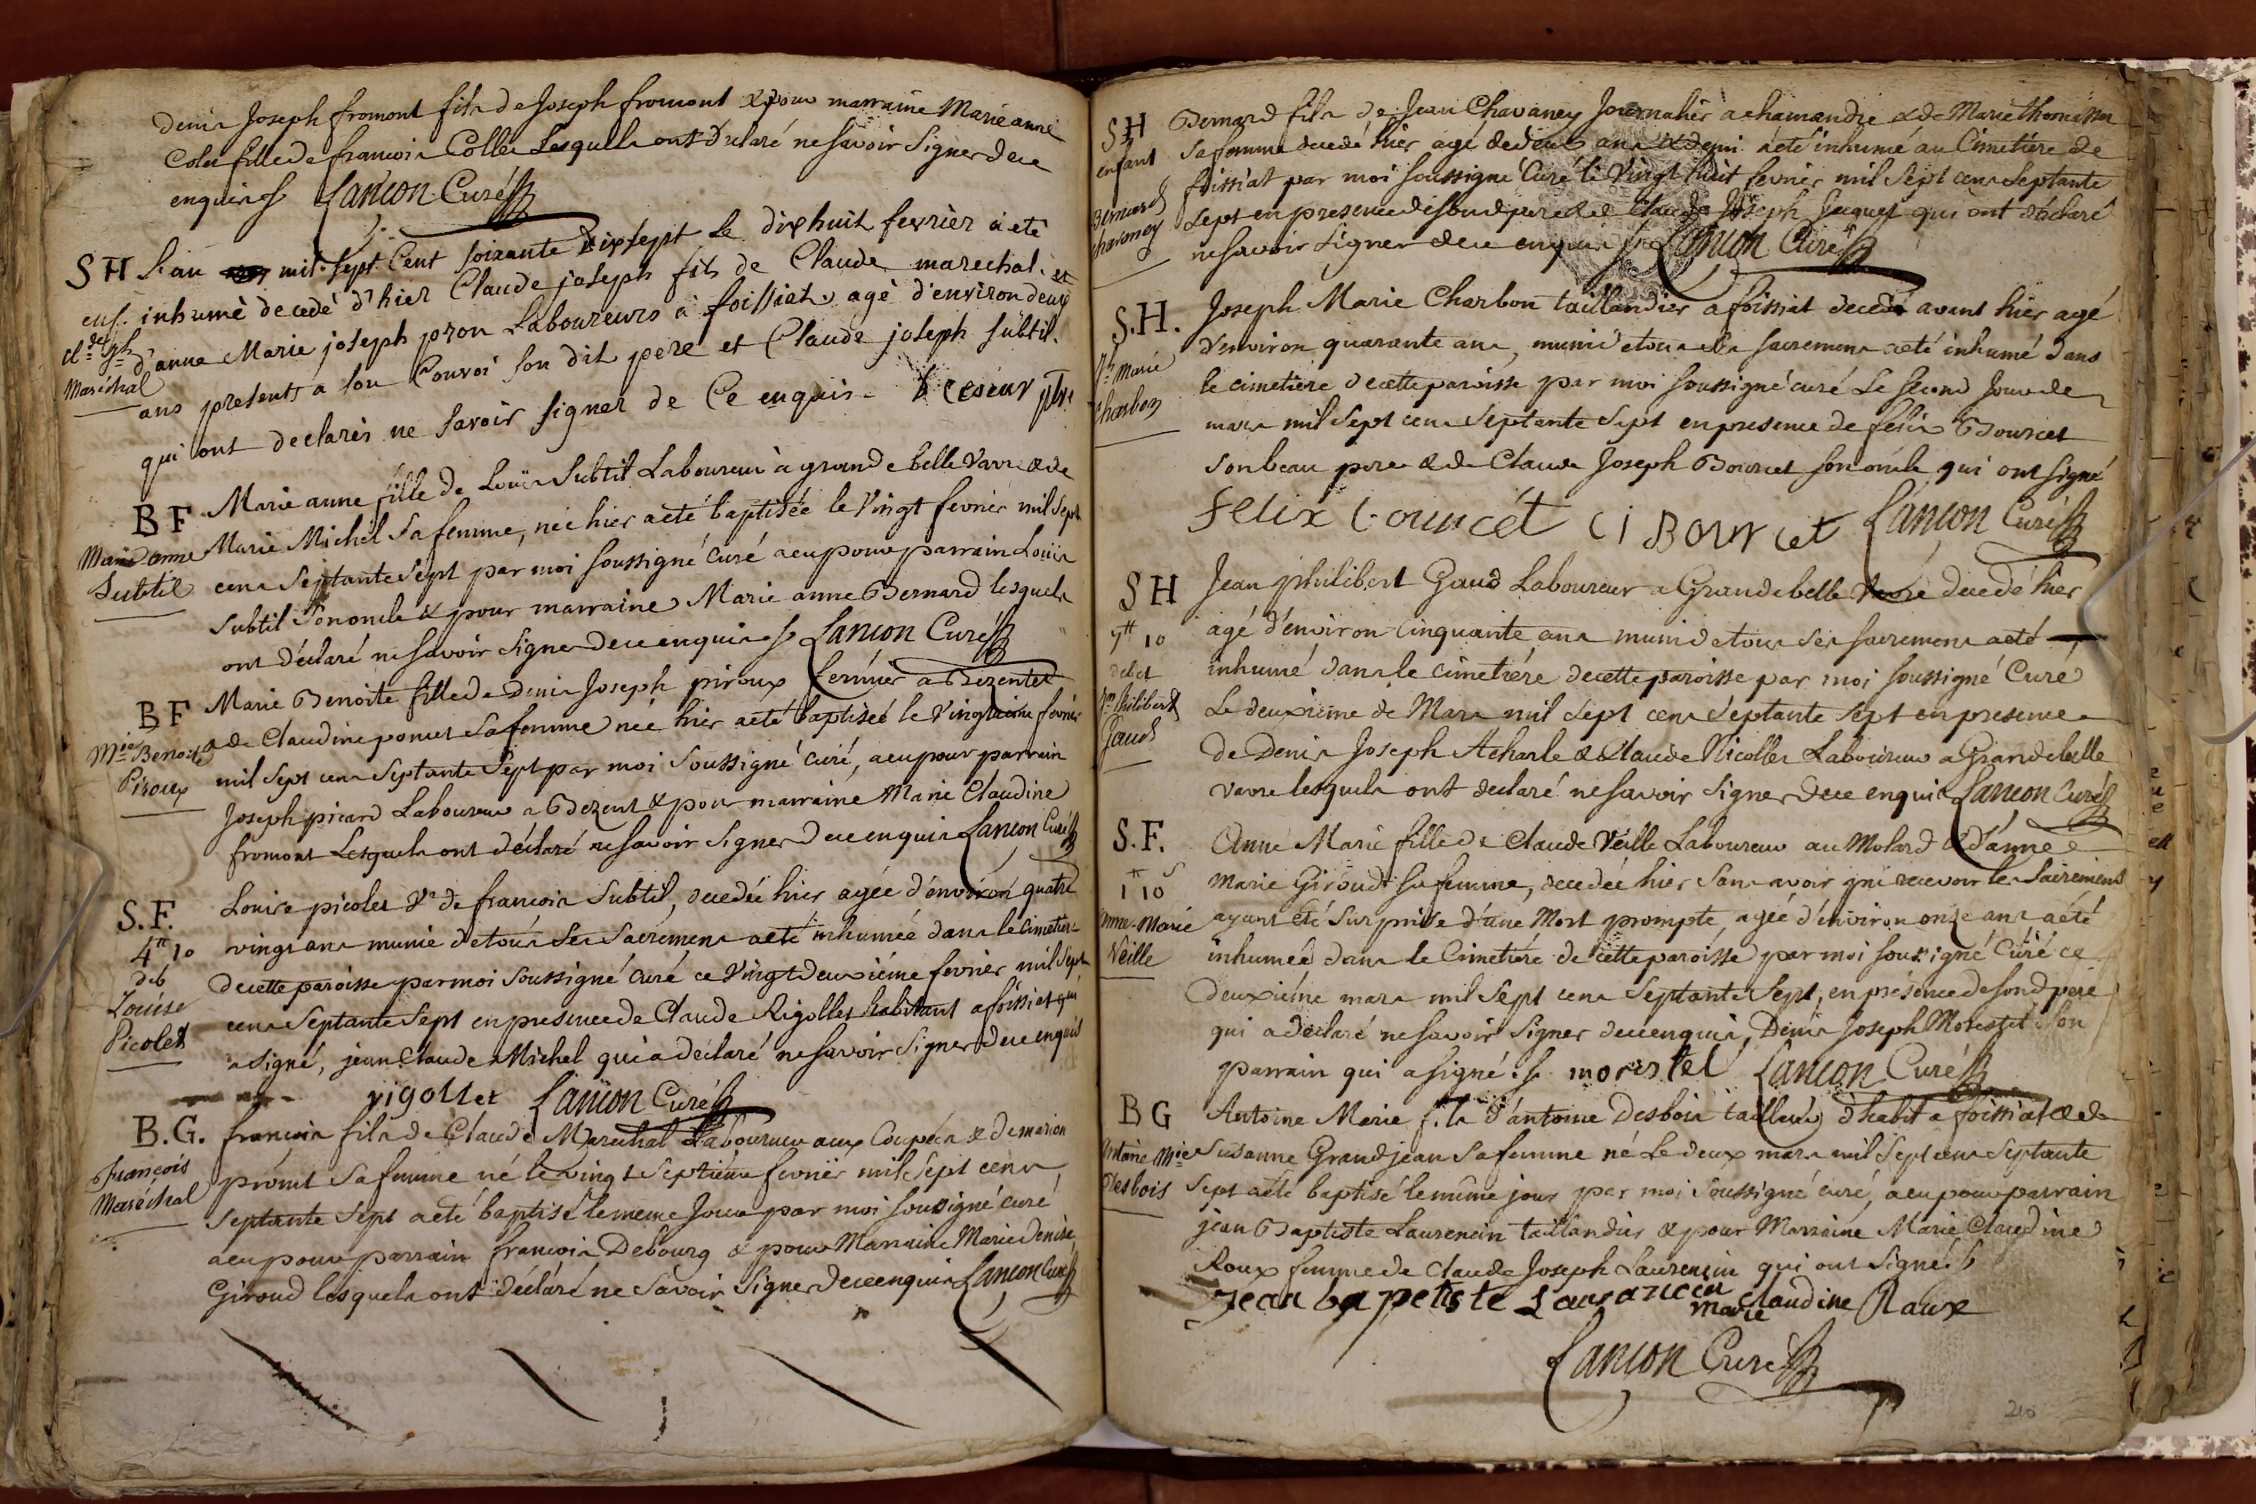 denis Joseph fromont fils de Joseph fromont & pour marraine Marie anne
Colet fille de francois Collet Lesquells ont déclaré ne savoir signer de ce
enquis Lançon Curé
SH L'an mil sept Cent soixante dix sept le dix huit fevrier a eté
enf. inhumé decedé d'hier Claude joseph fils de Claude marechal et
Cl.de jph d'anne Marie joseph pron Laboureurs a foissiat, agé d'environ deux
Maréchal ans presents a son Convoi son dit pere et Claude joseph subtil
qui ont declarés ne savoir signer de Ce enquis ptre
BF Marie anne fille de Loüis Subtil Laboureur à grande belle Vavre & de
Marie Michel sa femme, née hier a eté baptisée le Vingt fevrier mil sept
Marie anne
Subtil
cens septante sept par moi soussigné curé a eu pour parrain Loüis
Subtil son oncle & pour marraine Marie anne Bernard lesquels
ont déclaré ne savoir signer de ce enquis Lançon Curé
BF Marie Benoite fille de Denis Joseph piroux fermier a Bezentet
M.ie Benoite
Piroux
& de Claudine poncet sa femme née hier a eté baptisée le Vingtieme fevrier
mil sept cens septante sept par moi soussigné curé, a eu pour parrain
Joseph picard Laboureur a Bezent & pour marraine Marie Claudine
fromont Lesquels ont déclaré ne savoir signer de ce enquis Lançon Curé
S.F. Louise picolet Ve de francois Subtil, decedée hier agée d'environ quatre
4tt 10
deb
Louise
Picolet
vingts ans munie de tous ses Sacremens a eté inhumée dans le cimetiere
de cette paroisse par moi soussigné curé ce Vingt deuxième fevrier mil sept
cens septante sept en presence de Claude Rigollet habitant a foissiat qui
a signé, jean Claude Michel qui a déclaré ne savoir signer de ce enquis
rigollet Lançon Curé
B.G. francois fils de Claude Marechal Laboureur aux Coupées & de marion
François
Maréchal
promt sa femme né le vingt septieme fevrier mil sept cens
septante sept a eté baptisé le meme Jour par moi soussigné curé
a eu pour parrain francois Debourg & pour Marraine Marie Denise
Giroud lesquels ont déclaré ne savoir signer de ce enquis Lançon Curé
SH Bernard fils de Jean Chavaney Journalier a chamandre & de Marie thomasson
enfant
Bernard
Chavaney
sa femme decedé hier agé de deux ans & demi a eté inhumé au Cimetiére de
foissiat par moi soussigné Curé le Vingt huit fevrier mil sept cens septante
sept en presence de son d pere & de Claude Joseph Jacquet qui ont déclaré
ne savoir signer de ce enquis Lançon Curé
S.H. Joseph Marie Charbon taillandier a foissiat decedé avant hier agé
Jh marie
Charbon
d'environ quarante ans, muni de tous ses sacremens a eté inhumé dans
le cimetiere de cette paroisse par moi soussigné curé Le second jour de
mars mil sept cens septante sept en presence de felix Bourcet
son beau pere & de Claude Joseph Bourcet son oncle qui ont signé
Felix Bourcét Cj Bourcet Lançon Curé
SH Jean philibert Gaud Laboureur a Grande belle Vavre decedé hier
5tt 10
debet
Jn philibert
Gaud
agé d'environ Cinquante ans muni de tous ses sacremens a eté
inhumé dans le cimetiére de cette paroisse par moi soussigné Curé
Le deuxieme de Mars mil sept cens septante sept en presence
de Denis Joseph Acharle & Claude Nicollet Laboureur a Grande belle
vavre lesquels ont declaré ne savoir signer de ce enquis Lançon Curé
S.F. Anne Marie fille de Claude Véille Laboureur au Molard & d'anne
1tt 10s
Anne-Marie
Véille
Marie Giroud sa femme, decedée hier sans avoir pû recevoir les Sacremens
ayant eté surprise d'une Mort prompte, agée d'environ onze ans a eté
inhumée dans le Cimetiére de cette paroisse par moi soussigné Curé ce
deuxiéme mars mil sept cens septante sept, en présence de son d pere
qui a déclaré ne savoir signer de ce enquis, Denis Joseph Morestel son
parrain qui a signé morestel Lançon Curé
BG Antoine Marie fils d'antoine Desbois tailleur d'habit a foissiat & de
Antoine M.ie
Desbois
Susanne Grandjean sa femme né Le deux mars mil sept cens septante
sept a eté baptisé le même jour par moi soussigné curé, a eu pour parrain
jean Baptiste Laurencin taillandier & pour Marraine Marie Claudine
Roux femme de Claude Joseph Laurencin qui ont signés
Jean bapetiste Lauranccin
marie Claudine Raux
Lançon Curé
210